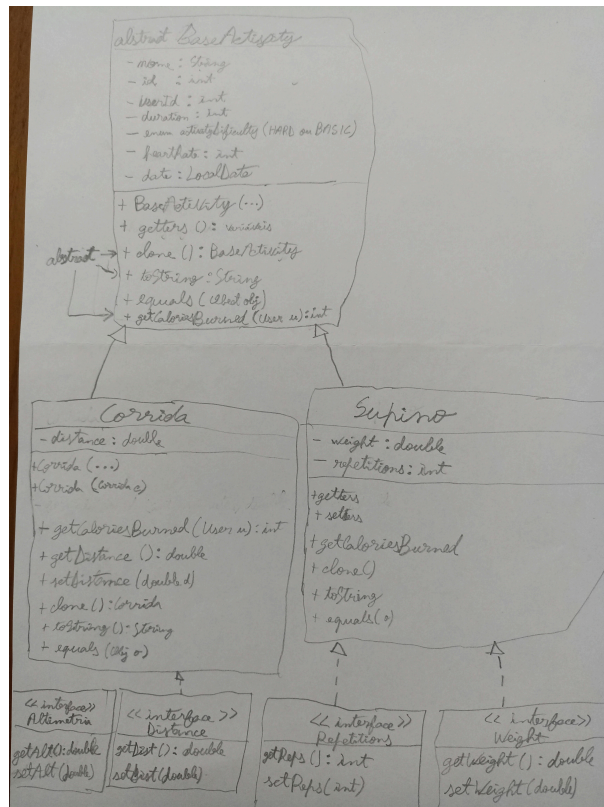 abstract BaseActivity
- nome : String
- id : int
- userId : int
- duration : int
- enum activityDifficulty (HARD ou BASIC)
- heartRate : int
- date : LocalDate
+ BaseActivity (...)
+ getters () : variáveis
abstract
+ clone () : BaseActivity
+ toString : String
+ equals (Object obj)
+ getCaloriesBurned (User u) : int
Corrida
- distance : double
+Corrida (...)
+Corrida (Corrida c)
+ getCaloriesBurned (User u) : int
+ getDistance () : double
+ setDistance (double d)
+ clone () : Corrida
+ toString () : String
+ equals (Obj o)
Supino
- weight : double
- repetitions : int
+getters
+ setters
+ getCaloriesBurned
+ clone()
+ toString
+ equals(o)
<< interface>>
Altimetria
getAlt() : double
setAlt (double)
<< interface >>
Distance
getDist () : double
setDist (double)
<< interface>>
Repetitions
getReps () : int
setReps (int)
<< interface>>
Weight
getWeight () : double
setWeight (double)